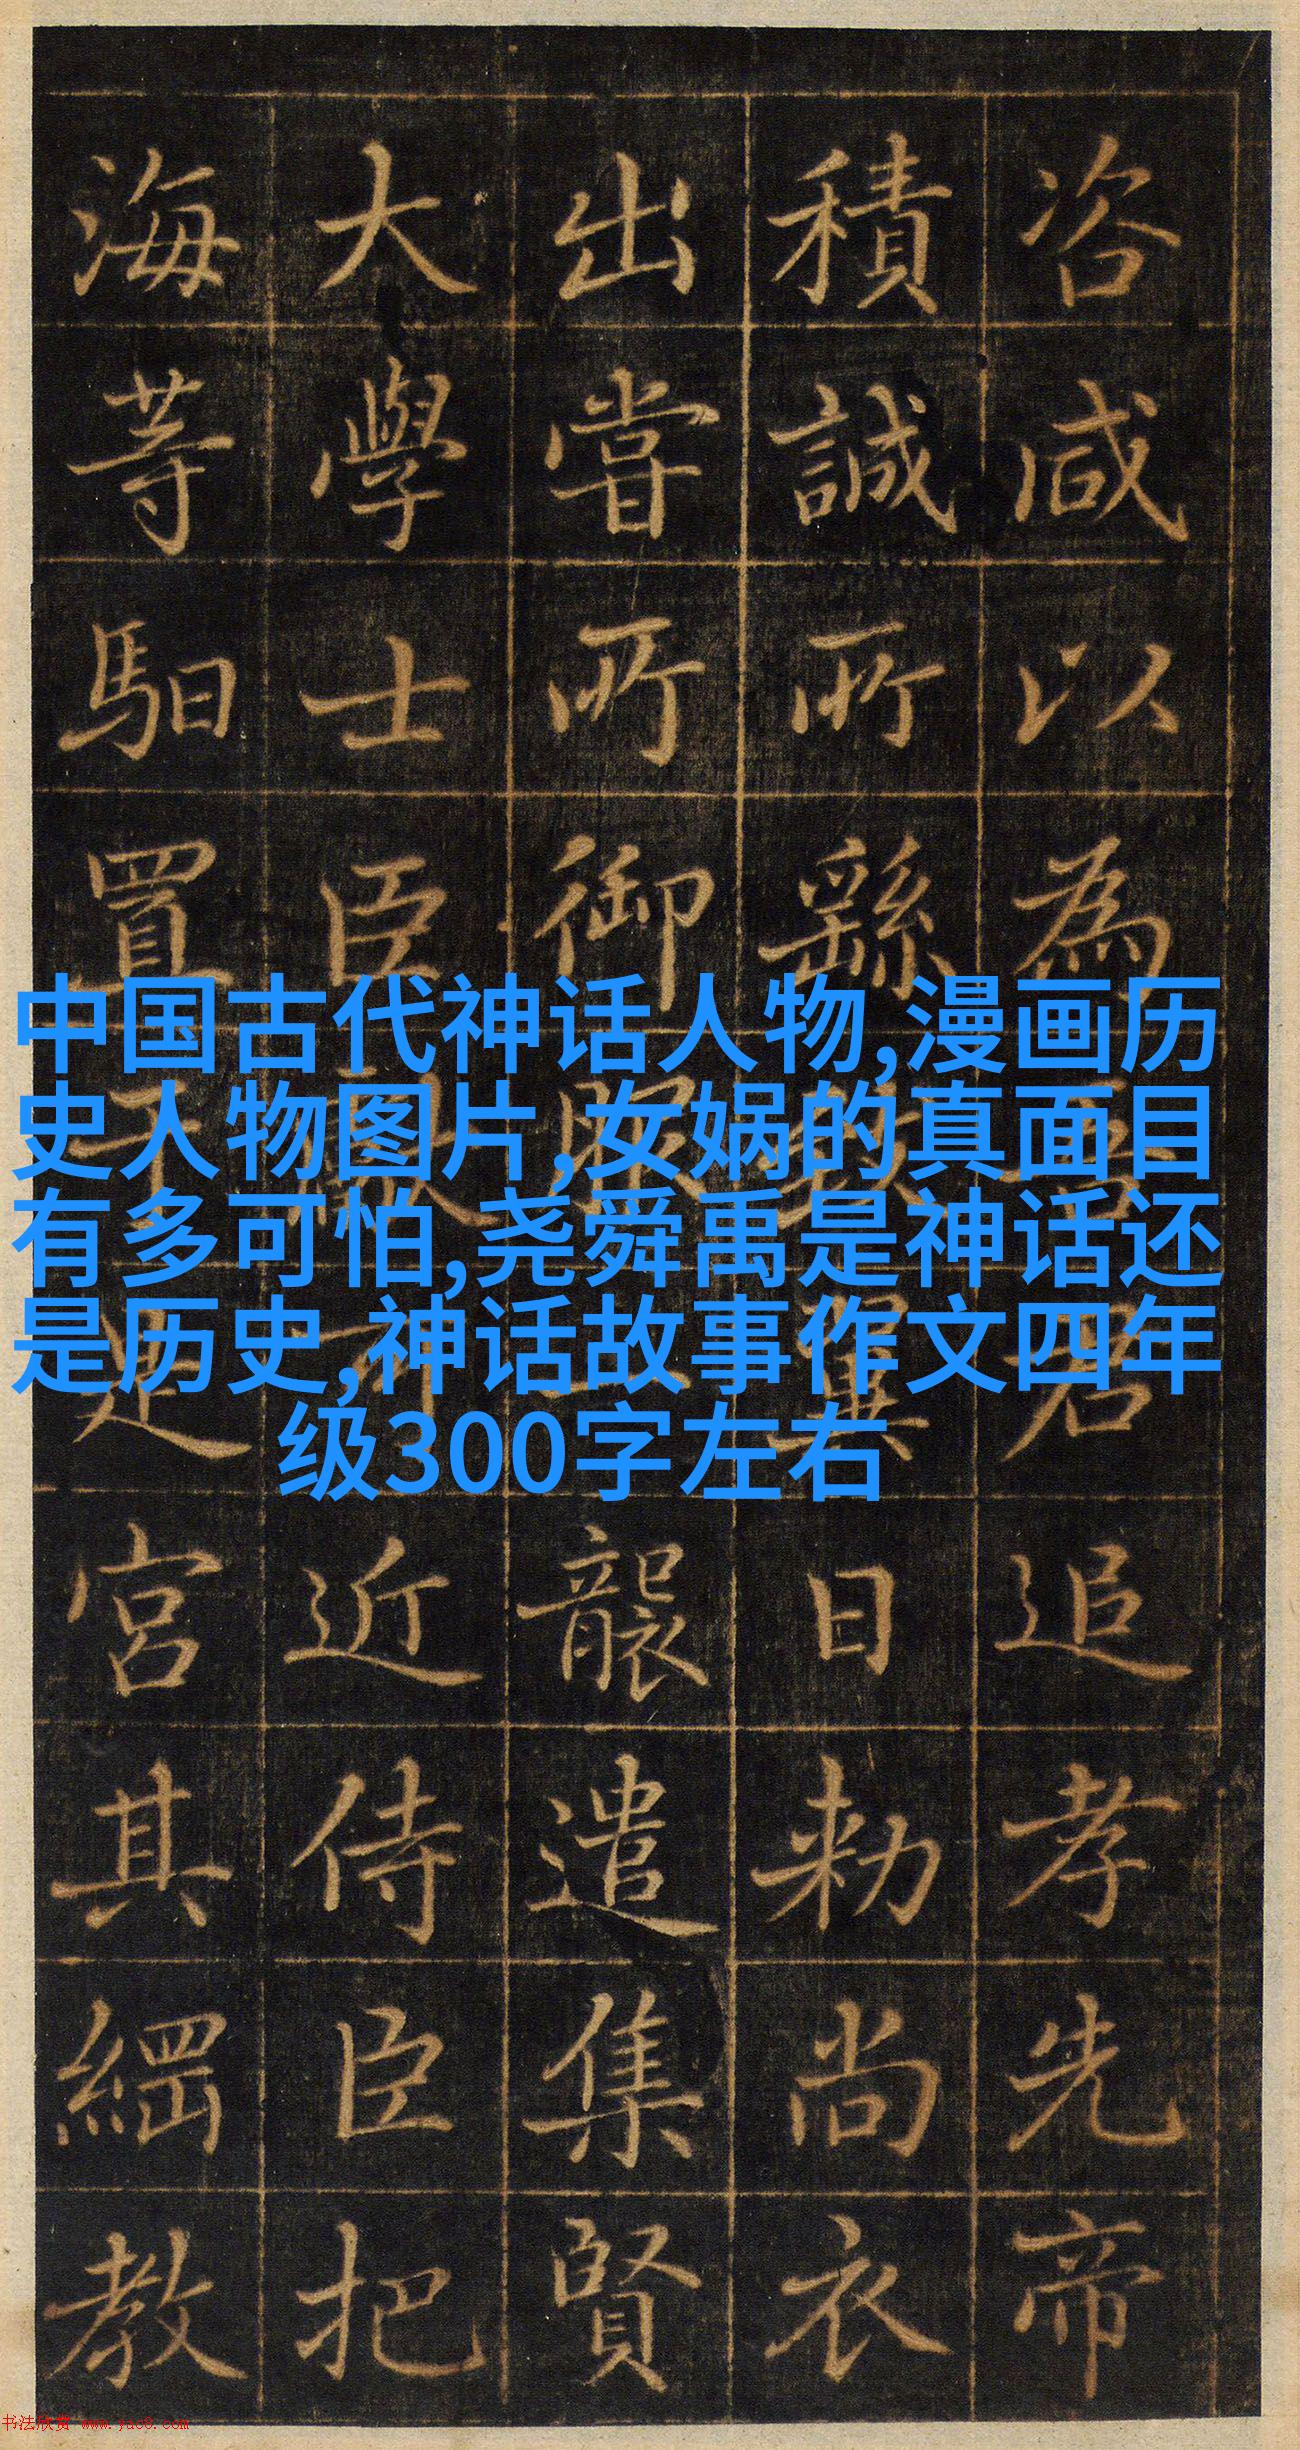 咨咸以為吾君追孝先帝
積誠所繇致翼日勑尚衣
出嘗所御服一襲遣集賢
大學士臣近侍臣把
海等馹置于宮其綱教
中国古代神话人物,漫画历
史人物图片,女娲的真面目
有多可怕,尧舜禹是神话还
是历史,神话故事作文四年
级300字左右
书法欣赏 www.yac8.com